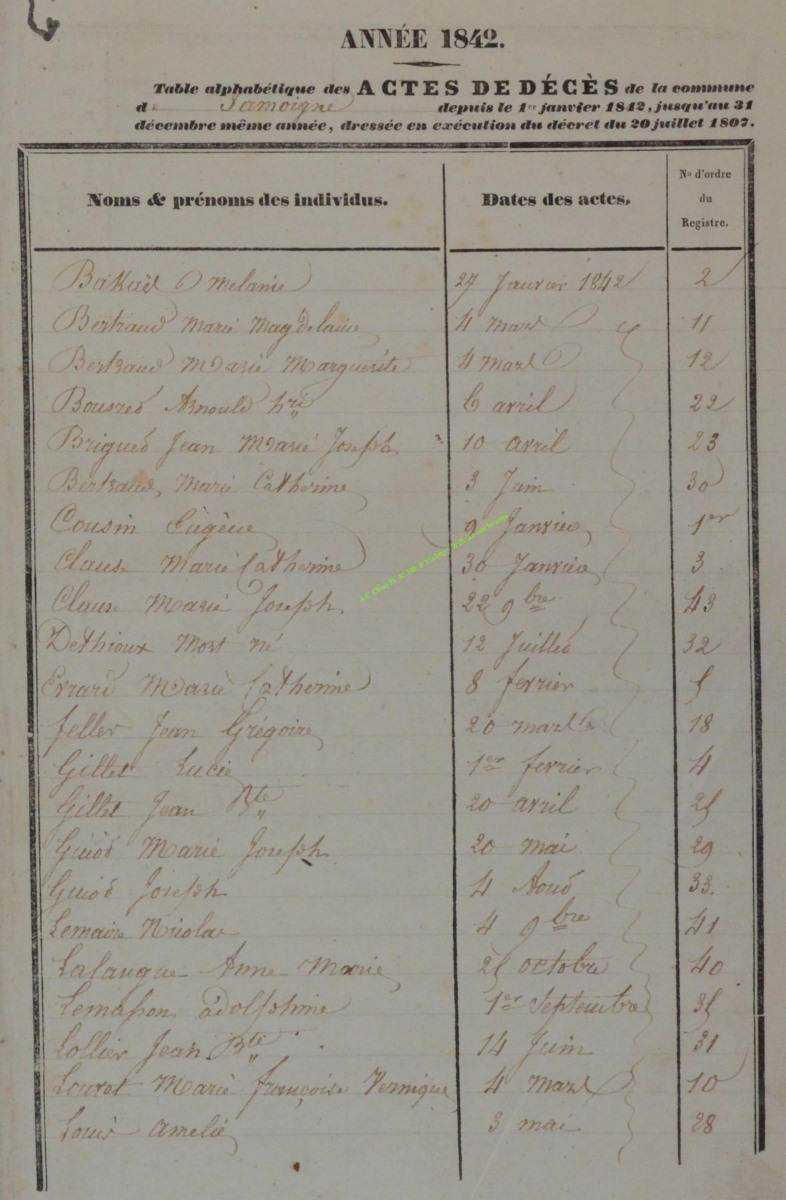 ANNÉE 1842.
Table alphabétique des ACTES DE DÉCÈS de la commune
d e Jamoigne depuis le 1er janvier 1842, jusqu'au 31
décembre même année, dressée en exécution du décret du 20 juillet 1807.
Noms & prénoms des individus. Dates des actes. No d'ordre du Registre.
Melanie 27 Janvier 1842 2
Bertrand Marie Magdelaine 4 mars 11
Bertrand Marie Marguerite 4 mars 12
Arnould hri 6 avril 22
Jean Marie Joseph 10 avril 23
Bertrand, Marie Catherine 3 Juin 30
Cousin Eugène 9 Janvier 1er
Clause Marie Catherine 30 Janvier 3
Clause Marie Joseph 22 9bre 43
Dethioux Mort né 12 Juillet 32
Errard Marie Catherine 8 fevrier 5
feller Jean Grégoire 20 mars 18
Gillet Lucie 1er fevrier 4
Gillet Jean Bte 20 avril 25
Guiot Marie Joseph 20 mai 29
Guiot Joseph 4 Aout 33.
Lemaire Nicolas 4 9bre 41
Anne Marie 25 octobre 40
Lemasson adolphine 1er Septembre 35
Lollier Jean Bte 14 Juin 31
Louret Marie françoise Vernique 4 Mars 10
Louis Amelie 3 mai 28